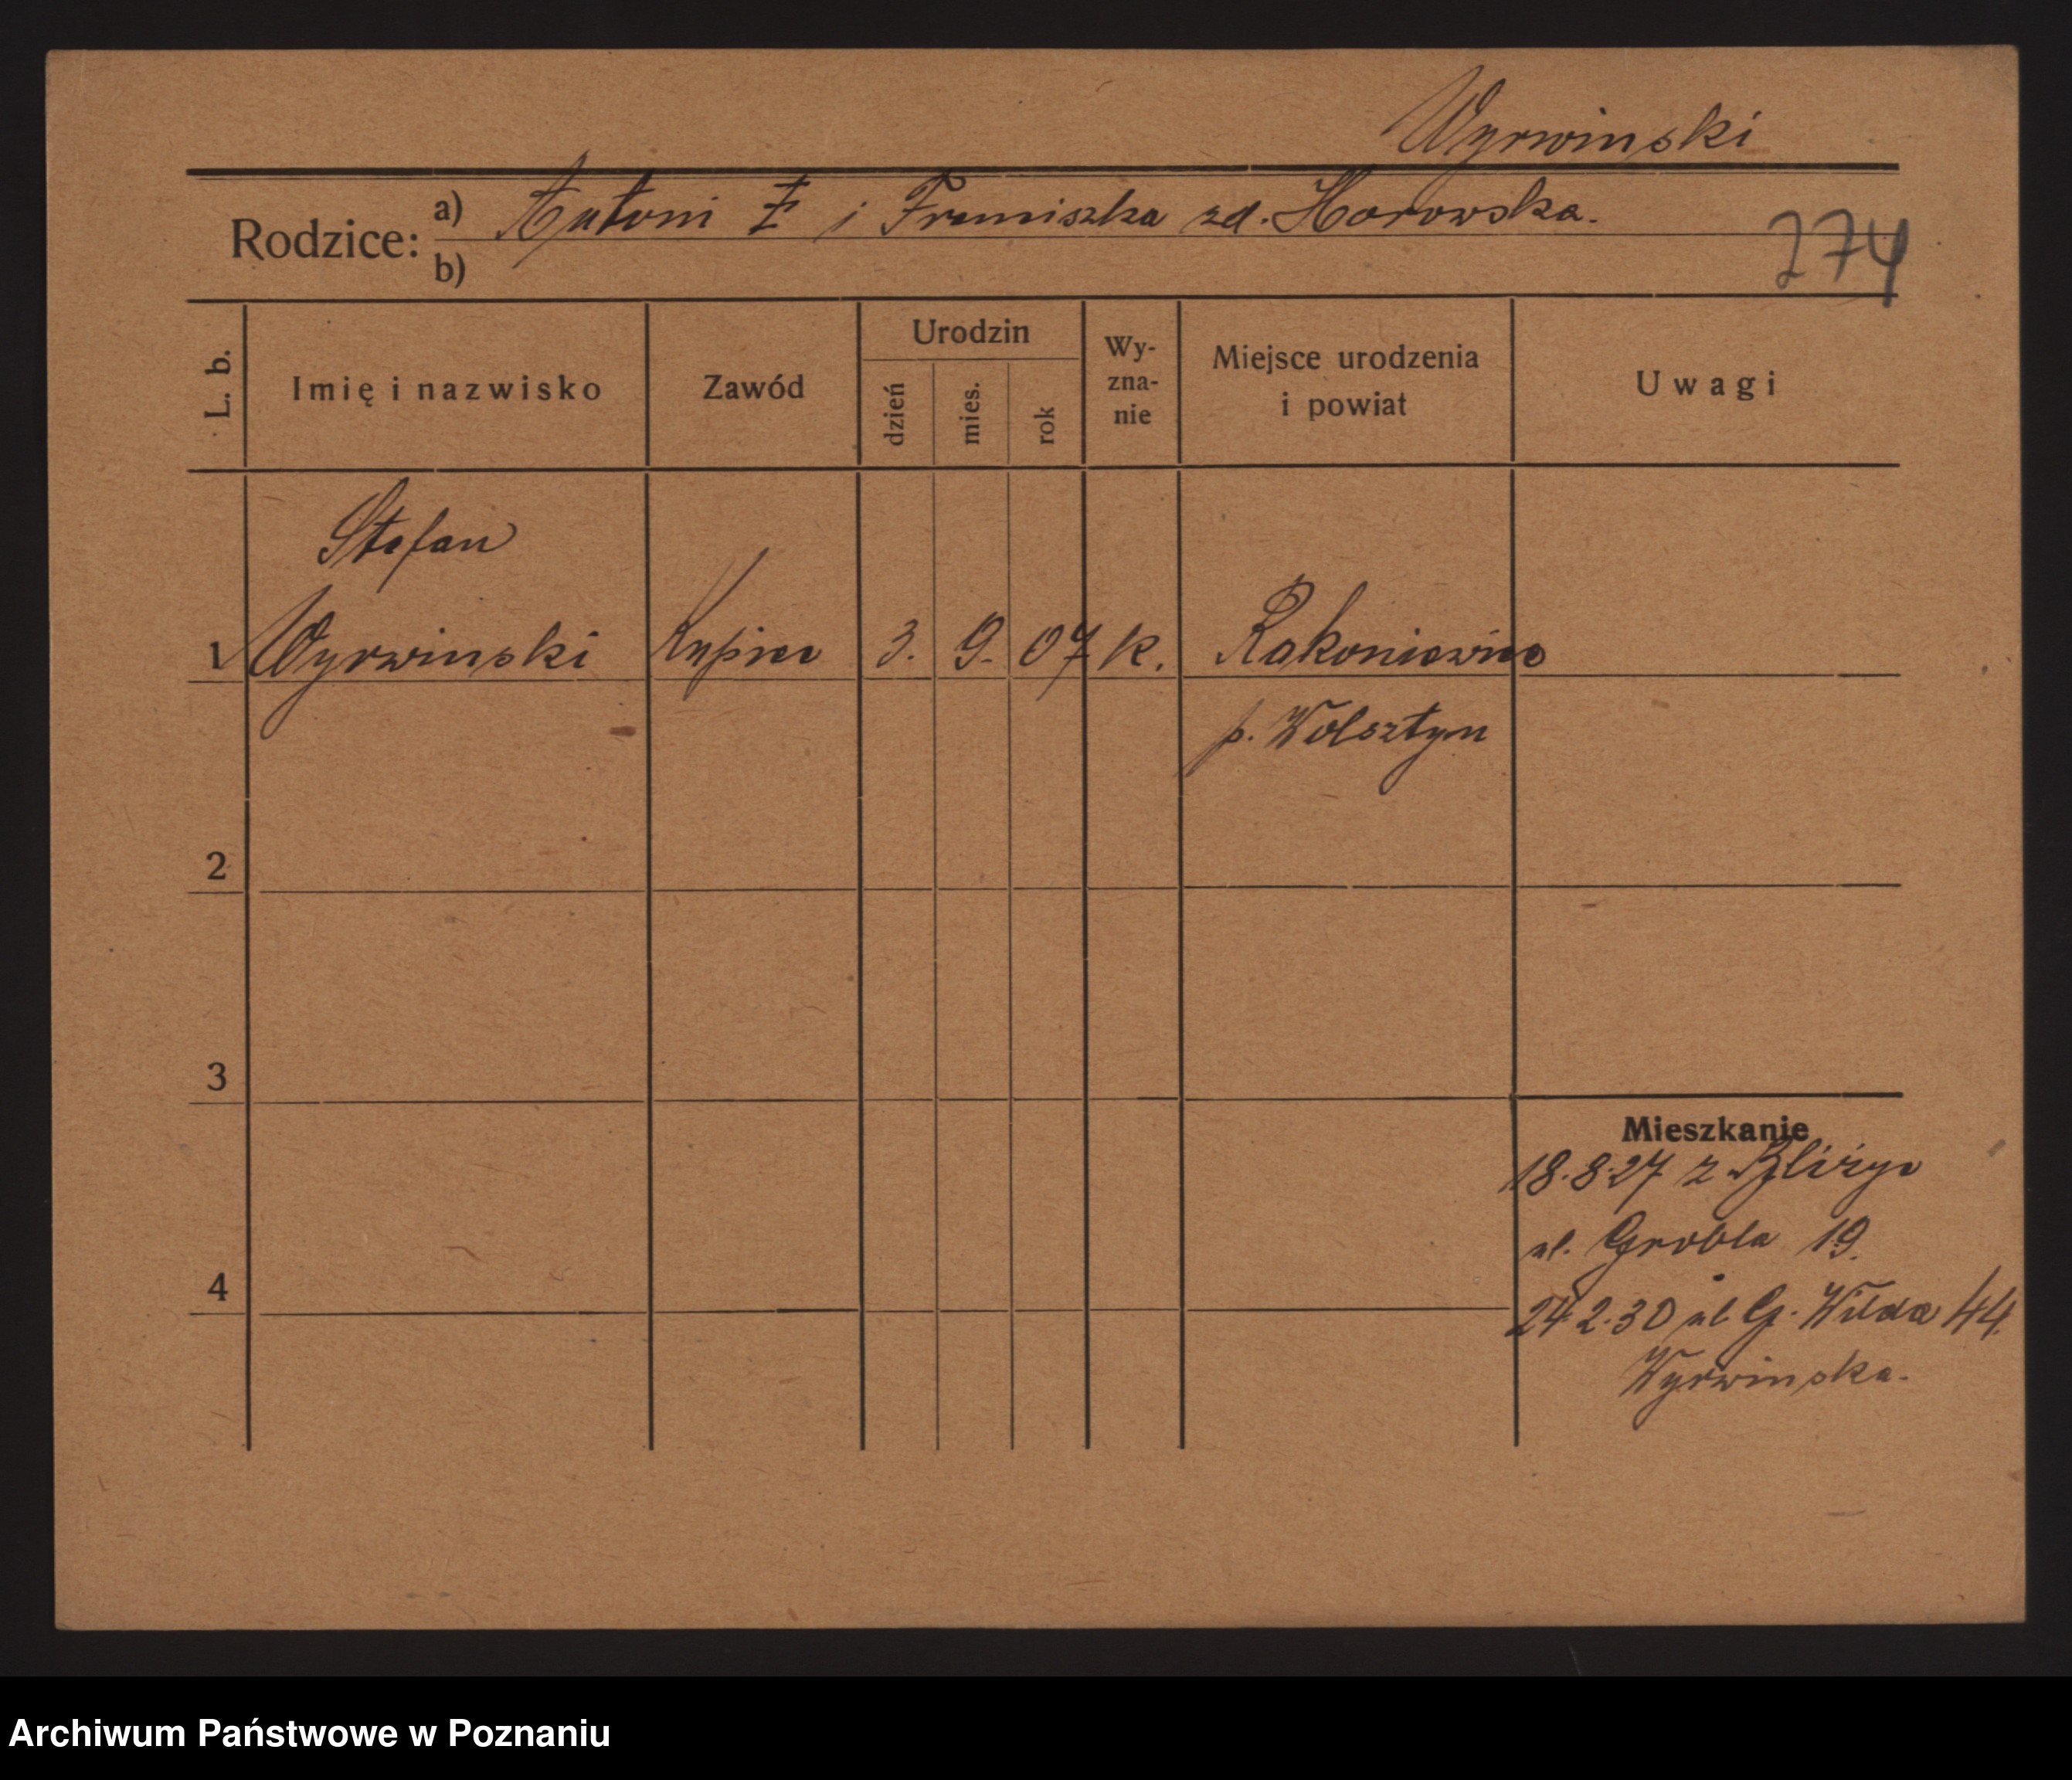 Wyrwinski
Rodzice: a) Antoni i Franciszka zd. Horowska.
b)
274
L. b.
Imię i nazwisko
Zawód
Urodzin
dzień
mies.
rok
Wy-
zna-
nie
Miejsce urodzenia
i powiat
Uwagi
Stefan
1 Wyrwinski Kupiec 3. 9. 07 k. Rakoniewice
p. Wolsztyn
2
3
4
Mieszkanie
18.8.27 z
ul. Grobla 19.
24.2.30 ul G. Wilda 44.
Wyrwinska.
Archiwum Państwowe w Poznaniu